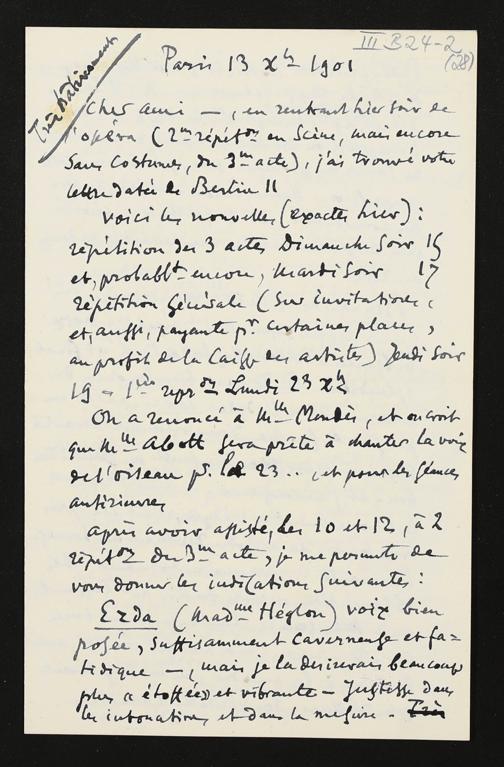 III B 24-2
(28)
Paris 13 Xbre 1901
Très
Cher ami —, en rentrant hier soir de
l'opéra (2me répéton en scène, mais encore
sans costumes, du 3me acte), j'ai trouvé votre
lettre datée de Berlin 11
Voici les nouvelles (exactes hier) :
répétition des 3 actes Dimanche soir 15
et, probablt encore, Mardi soir 17
répétition générale (sur invitations,
et, aussi, payante pr certaines places,
au profit de la Caisse des artistes) Jeudi soir
19 – 1ère repron Lundi 23 Xbre
On a renoncé à Mlle Mendès, et on croit
que Mlle Abott sera prête à chanter la voix
de l'oiseau pr le 23 .. , et pour les séances
antérieures
après avoir assisté, les 10 et 12, à 2
répétons du 3me acte, je me permets de
vous donner les indications suivantes :
Erda (Madme Héglon) voix bien
posée, suffisamment caverneuse et fa=
tidique —, mais je la desirerais beaucoup
plus « étoffée » et vibrante – Justesse dans
les intonations et dans la mesure. Très